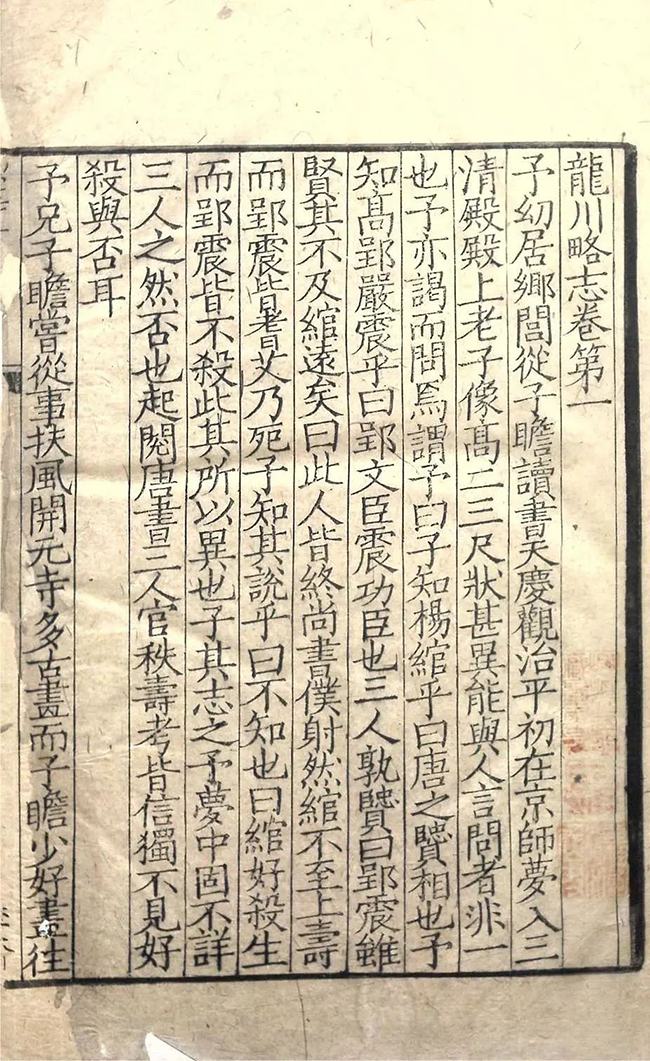 龍川略志卷第一
予幼居鄉閭從子瞻讀書天慶觀治平初在京師夢入三
清殿殿上老子像高二三尺狀甚異能與人言問者非一
也予亦謁而問焉謂予曰子知楊綰乎曰唐之賢相也予
知高郢嚴震乎曰郢文臣震功臣也三人孰賢曰郢震雖
賢其不及綰遠矣曰此人皆終尚書僕射然綰不至上壽
而郢震皆耆艾乃死子知其說乎曰不知也曰綰好殺生
而郢震皆不殺此其所以異也子其志之予夢中固不詳
三人之然否也起閱唐書三人官秩壽考皆信獨不見好
殺與否耳
予兄子瞻嘗從事扶風開元寺多古畫而子瞻少好畫往